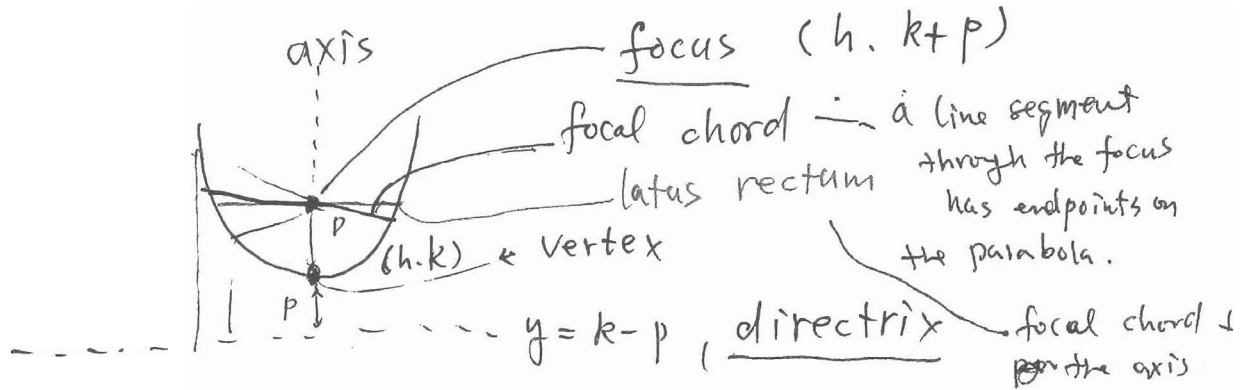 axis
focus (h. k+p)
focal chord — a line segment
through the focus
has endpoints on
the parabola.
latus rectum
p
(h.k) ← vertex
p
y = k-p, directrix
focal chord ⊥
the axis